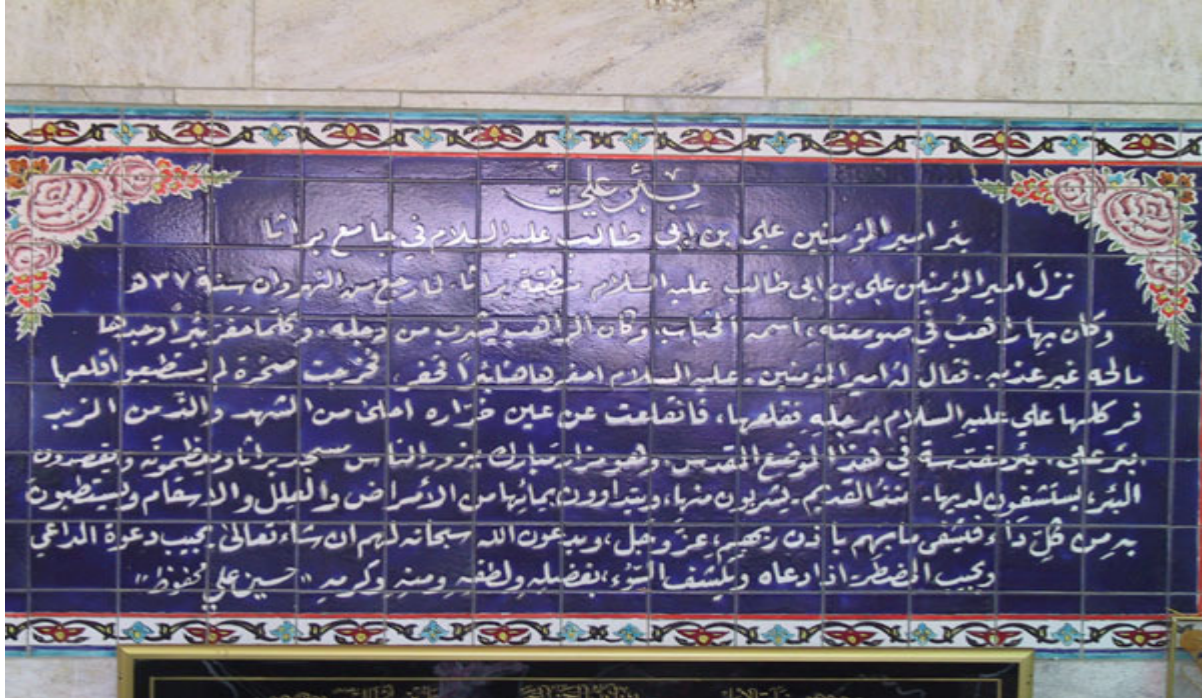 بئر علي
بئر امير المؤمنين علي بن ابي طالب عليه السلام في جامع براثا
نزل امير المؤمنين علي بن ابي طالب عليه السلام منطقة براثا لما رجع من النهروان سنة ٣٧ هـ
وكان بها راهب في صومعته، اسمه الحباب، وكان الراهب يشرب من دجله. وكلما حفر بئراً وجدها
مالحه غير عذبه. فقال له امير المؤمنين. عليه السلام احفر هاهنا بئراً فحفر. فخرجت صخرة لم يستطيعو اقلعها
فركلها علي عليه السلام برجله فقلعها، فانقلعت عن عين خرّاره احلى من الشهد والذ من الزبد
بئر علي، بئر مقدسة في هذا الموضع المقدس. وهو مزار مبارك يزور الناس مسجد براثا ويعظمونه ويقصدون
البئر، يستشفون لديها. منذ القديم. يشربون منها، ويتداوون بمائها من الأمراض والعلل والاسقام ويستطبون
به من كلّ داء فيشفى ما بهم باذن ربهم، عزّ وجل، ويدعون الله سبحانه لهم ان شاء تعالى يجيب دعوة الداعي
ويجيب المضطر اذا دعاه ويكشف السّوء، بفضله ولطفه ومنه وكرمه "حسين علي محفوظ"